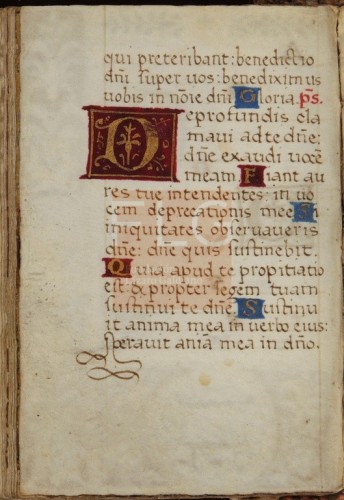 qui preteribant: benedictio
dñi super uos: benediximus
uobis in nõie dñi Gloria. ps.
De profundis cla
maui ad te dñe:
dñe exaudi uocẽ
meam. Fiant au
res tue intendentes: in uo
cem deprecationis mee Si
iniquitates obseruaueris
dñe: dñe quis sustinebit.
Quia apud te propitiatio
est: & propter legem tuam
sustinui te dñe. Sustinu
it anima mea in uerbo eius:
sperauit aniã mea in dño.